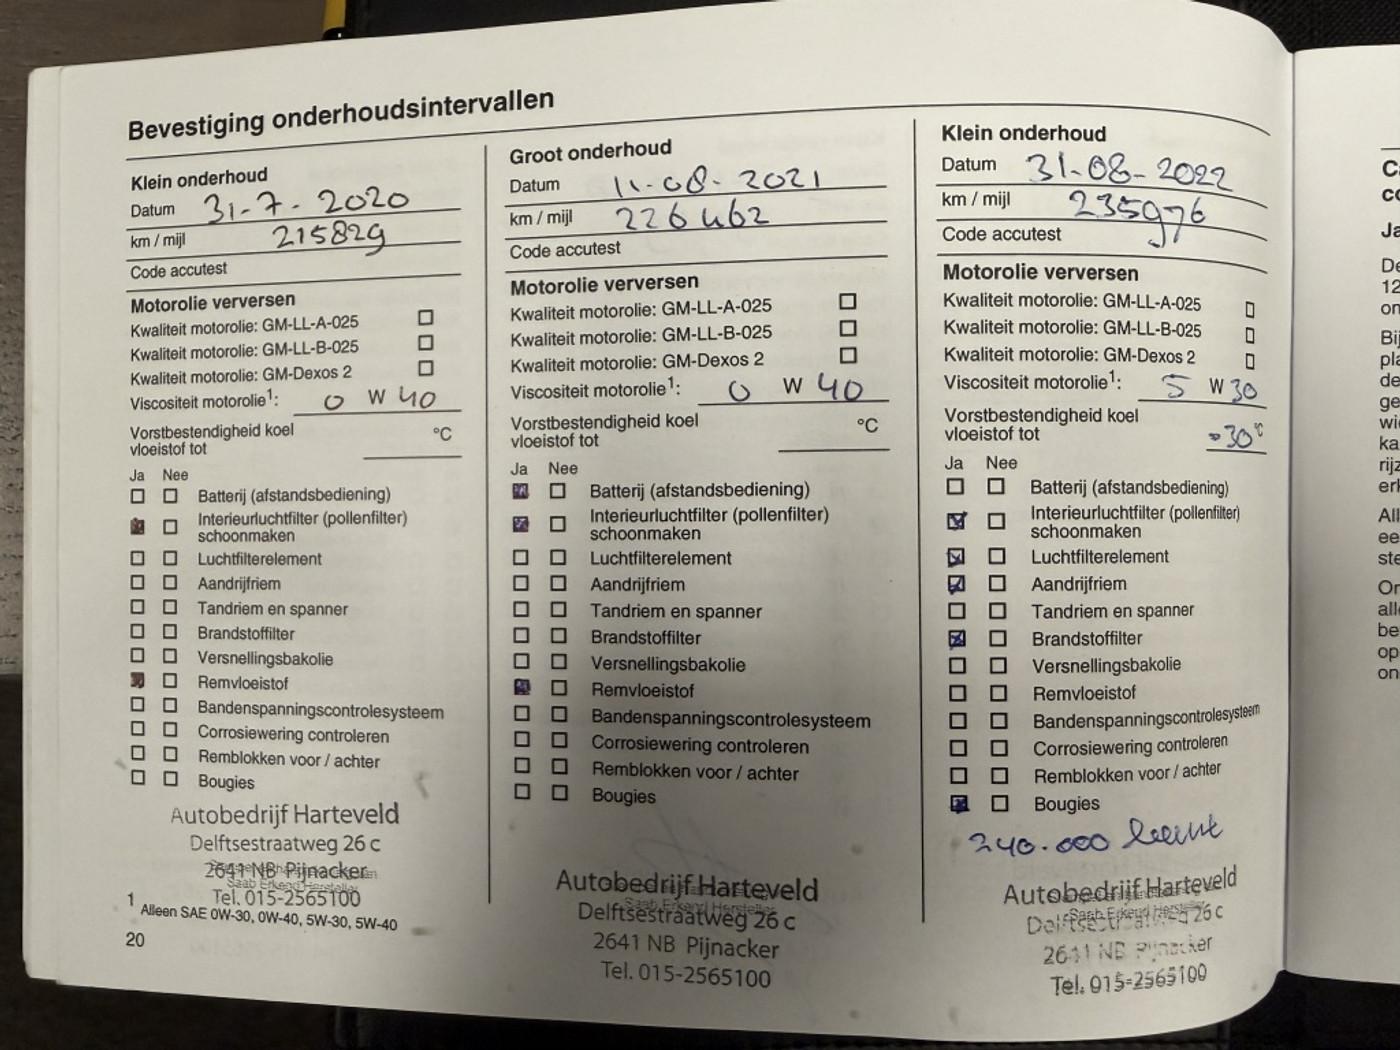 Bevestiging onderhoudsintervallen
Klein onderhoud
Datum 31-7-2020
km / mijl 215829
Code accutest
Motorolie verversen
Kwaliteit motorolie: GM-LL-A-025
Kwaliteit motorolie: GM-LL-B-025
Kwaliteit motorolie: GM-Dexos 2
Viscositeit motorolie1: 0 W 40
Vorstbestendigheid koel °C
vloeistof tot
Ja Nee
Batterij (afstandsbediening)
Interieurluchtfilter (pollenfilter)
schoonmaken
Luchtfilterelement
Aandrijfriem
Tandriem en spanner
Brandstoffilter
Versnellingsbakolie
Remvloeistof
Bandenspanningscontrolesysteem
Corrosiewering controleren
Remblokken voor / achter
Bougies
Autobedrijf Harteveld
Delftsestraatweg 26 c
2641 NB Pijnacker
Saab Erkend Hersteller
Tel. 015-2565100
1 Alleen SAE 0W-30, 0W-40, 5W-30, 5W-40
20
Groot onderhoud
Datum 11-08-2021
km / mijl 226462
Code accutest
Motorolie verversen
Kwaliteit motorolie: GM-LL-A-025
Kwaliteit motorolie: GM-LL-B-025
Kwaliteit motorolie: GM-Dexos 2
Viscositeit motorolie1: 0 W 40
Vorstbestendigheid koel °C
vloeistof tot
Ja Nee
Batterij (afstandsbediening)
Interieurluchtfilter (pollenfilter)
schoonmaken
Luchtfilterelement
Aandrijfriem
Tandriem en spanner
Brandstoffilter
Versnellingsbakolie
Remvloeistof
Bandenspanningscontrolesysteem
Corrosiewering controleren
Remblokken voor / achter
Bougies
Autobedrijf Harteveld
Saab Erkend Hersteller
Delftsestraatweg 26 c
2641 NB Pijnacker
Tel. 015-2565100
Klein onderhoud
Datum 31-08-2022
km / mijl 235976
Code accutest
Motorolie verversen
Kwaliteit motorolie: GM-LL-A-025
Kwaliteit motorolie: GM-LL-B-025
Kwaliteit motorolie: GM-Dexos 2
Viscositeit motorolie1: 5 W 30
Vorstbestendigheid koel
vloeistof tot -30 °C
Ja Nee
Batterij (afstandsbediening)
Interieurluchtfilter (pollenfilter)
schoonmaken
Luchtfilterelement
Aandrijfriem
Tandriem en spanner
Brandstoffilter
Versnellingsbakolie
Remvloeistof
Bandenspanningscontrolesysteem
Corrosiewering controleren
Remblokken voor / achter
Bougies
240.000 beurt
Autobedrijf Harteveld
Saab Erkend Hersteller
Delftsestraatweg 26 c
2641 NB Pijnacker
Tel. 015-2565100